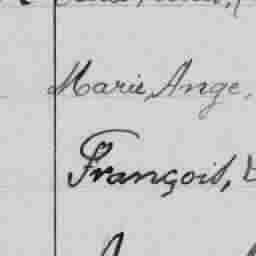 Marie, Ange,
François,